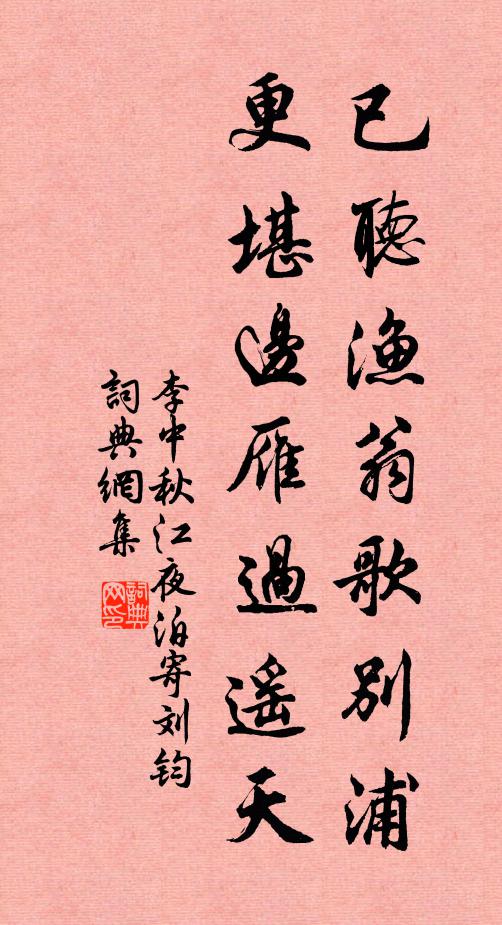 已聽漁翁歌別浦
更堪邊雁過遥天
李中秋江夜泊寄刘鈞
詞典網集
詞典网印